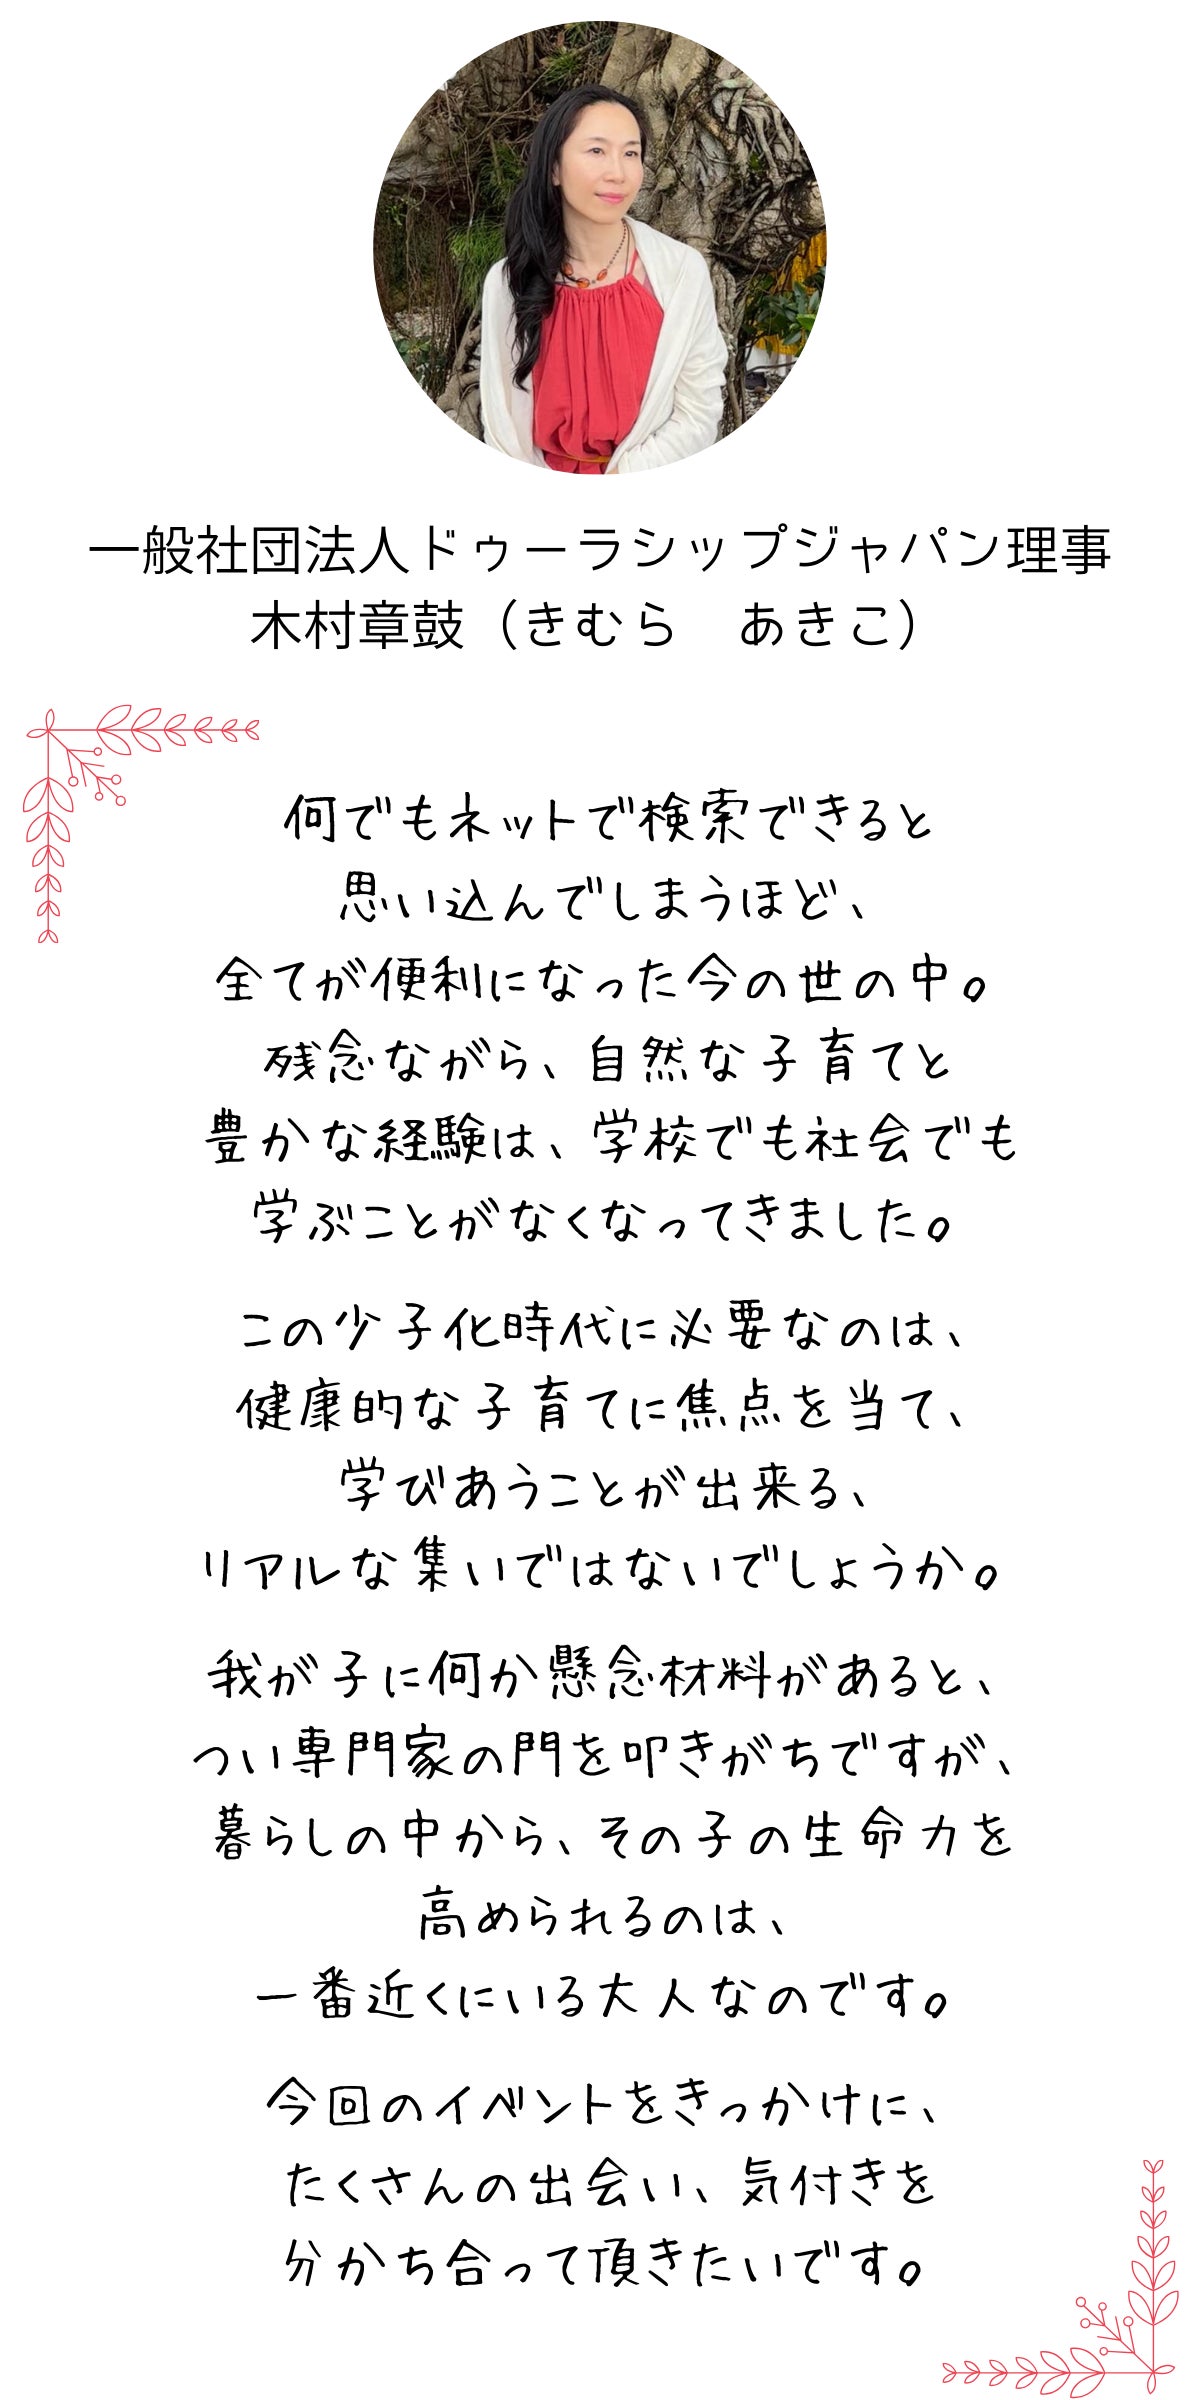 一般社団法人ドゥーラシップジャパン理事
木村章鼓（きむら　あきこ）
何でもネットで検索できると
思い込んでしまうほど、
全てが便利になった今の世の中。
残念ながら、自然な子育てと
豊かな経験は、学校でも社会でも
学ぶことがなくなってきました。
この少子化時代に必要なのは、
健康的な子育てに焦点を当て、
学びあうことが出来る、
リアルな集いではないでしょうか。
我が子に何か懸念材料があると、
つい専門家の門を叩きがちですが、
暮らしの中から、その子の生命力を
高められるのは、
一番近くにいる大人なのです。
今回のイベントをきっかけに、
たくさんの出会い、気付きを
分かち合って頂きたいです。